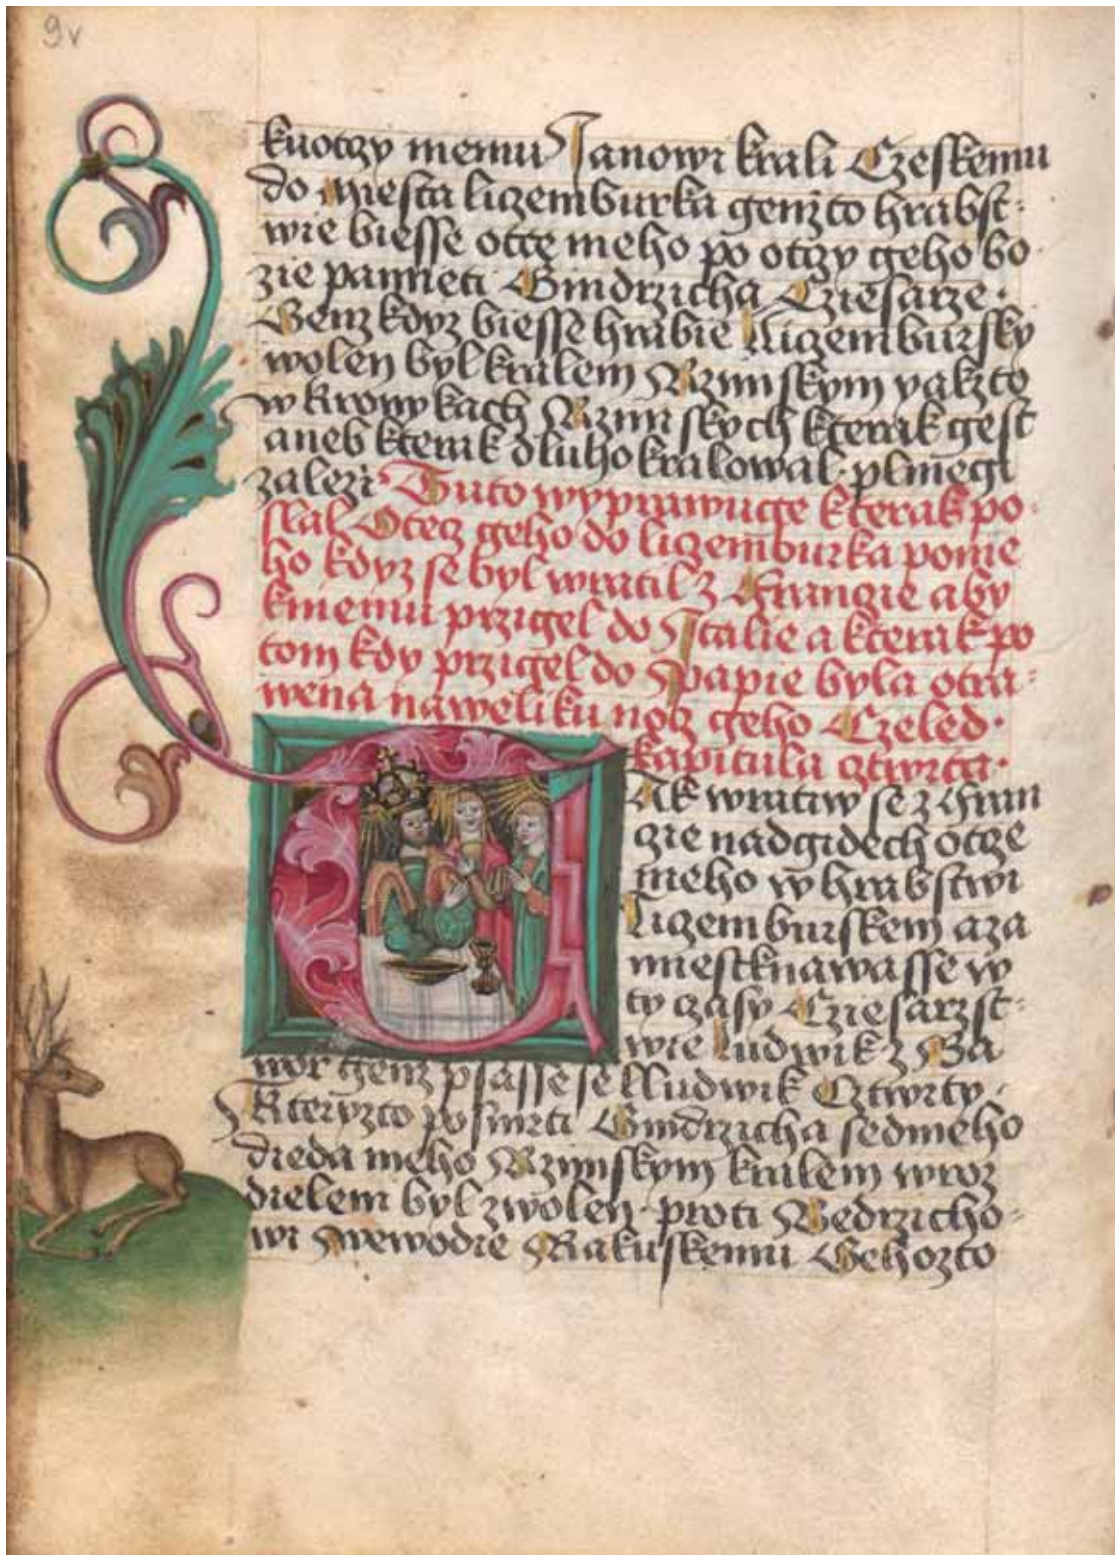 9v
kuotczy memu Janowi krali Czeskemu
do Miesta liczemburka genžto hrabst:
wie biesse otcze meho po otczy geho bo
zie pamieti Gindrzicha Cziesarze ·
Genz kdyz biesse hrabie Liczembursky
wolen byl kralem Rzimskym yakžto
w kronykach Rzimskych kterak gest
aneb kterak dluho kralowal · plniegi
zalezi Tuto wyprawuge kterak po:
slal Otecz geho do liczemburka ponie
ho kdyz se byl wratil z Franczie aby
kniemu przigel do Italie a kterak po
tom kdy przigel do Papie byla otra:
wena naweliku nocz geho Czeled ·
kapitula cztwrta ·
Ak wratiw se z Fran
czie nadgidech otcze
meho w hrabstwi
Liczemburskem aza
miestknawasse w
ty czasy Cziesarzst:
wie Ludwik z Ba
wor genz psasse se lludwik Cztwrty ·
Kteryzto po smrti Gindrzicha sedmeho
dieda meho Rzimskym kralem wroz
dielem byl zwolen · proti Bedrzicho:
wi Wewodie Rakuskemu Gehozto